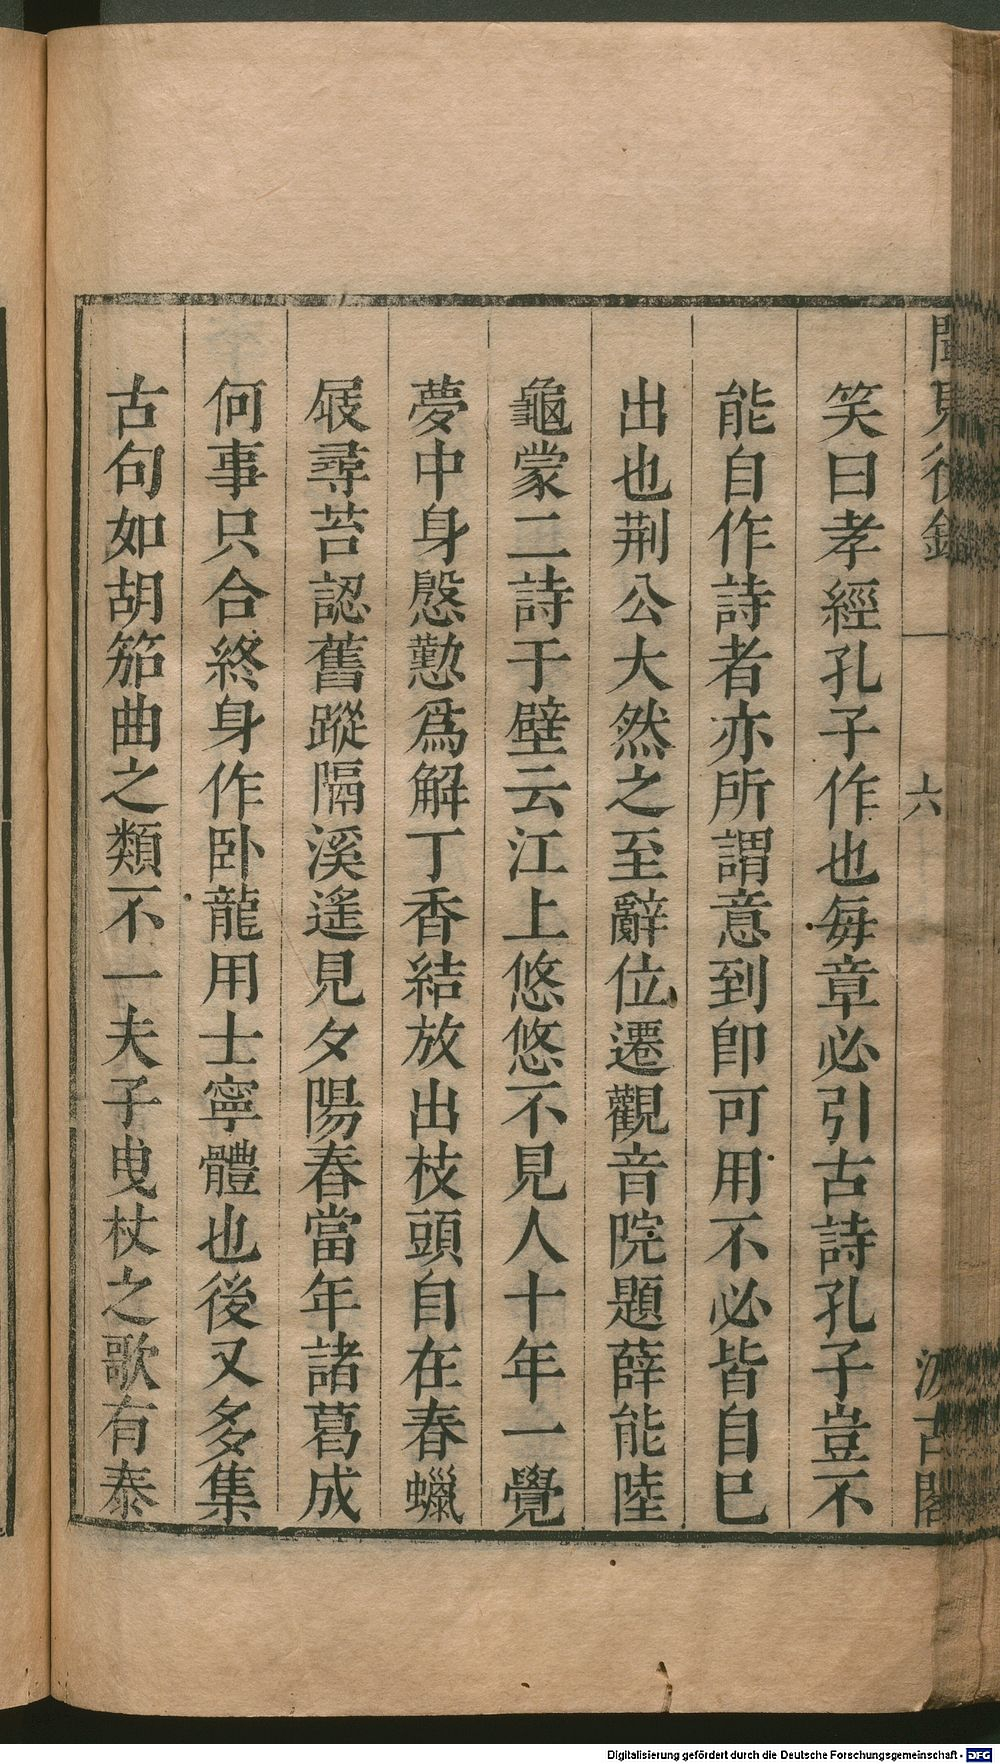 聞見後錄
六
汲古閣
笑曰孝經孔子作也每章必引古詩孔子豈不
能自作詩者亦所謂意到卽可用不必皆自已
出也荆公大然之至辭位遷觀音院題薛能陸
龜蒙二詩于壁云江上悠悠不見人十年一覺
夢中身慇懃爲解丁香結放出枝頭自在春蠟
屐尋苔認舊蹤隔溪遙見夕陽春當年諸葛成
何事只合終身作卧龍用士寧體也後又多集
古句如胡笳曲之類不一夫子曳杖之歌有泰
Digitalisierung gefördert durch die Deutsche Forschungsgemeinschaft - DFG